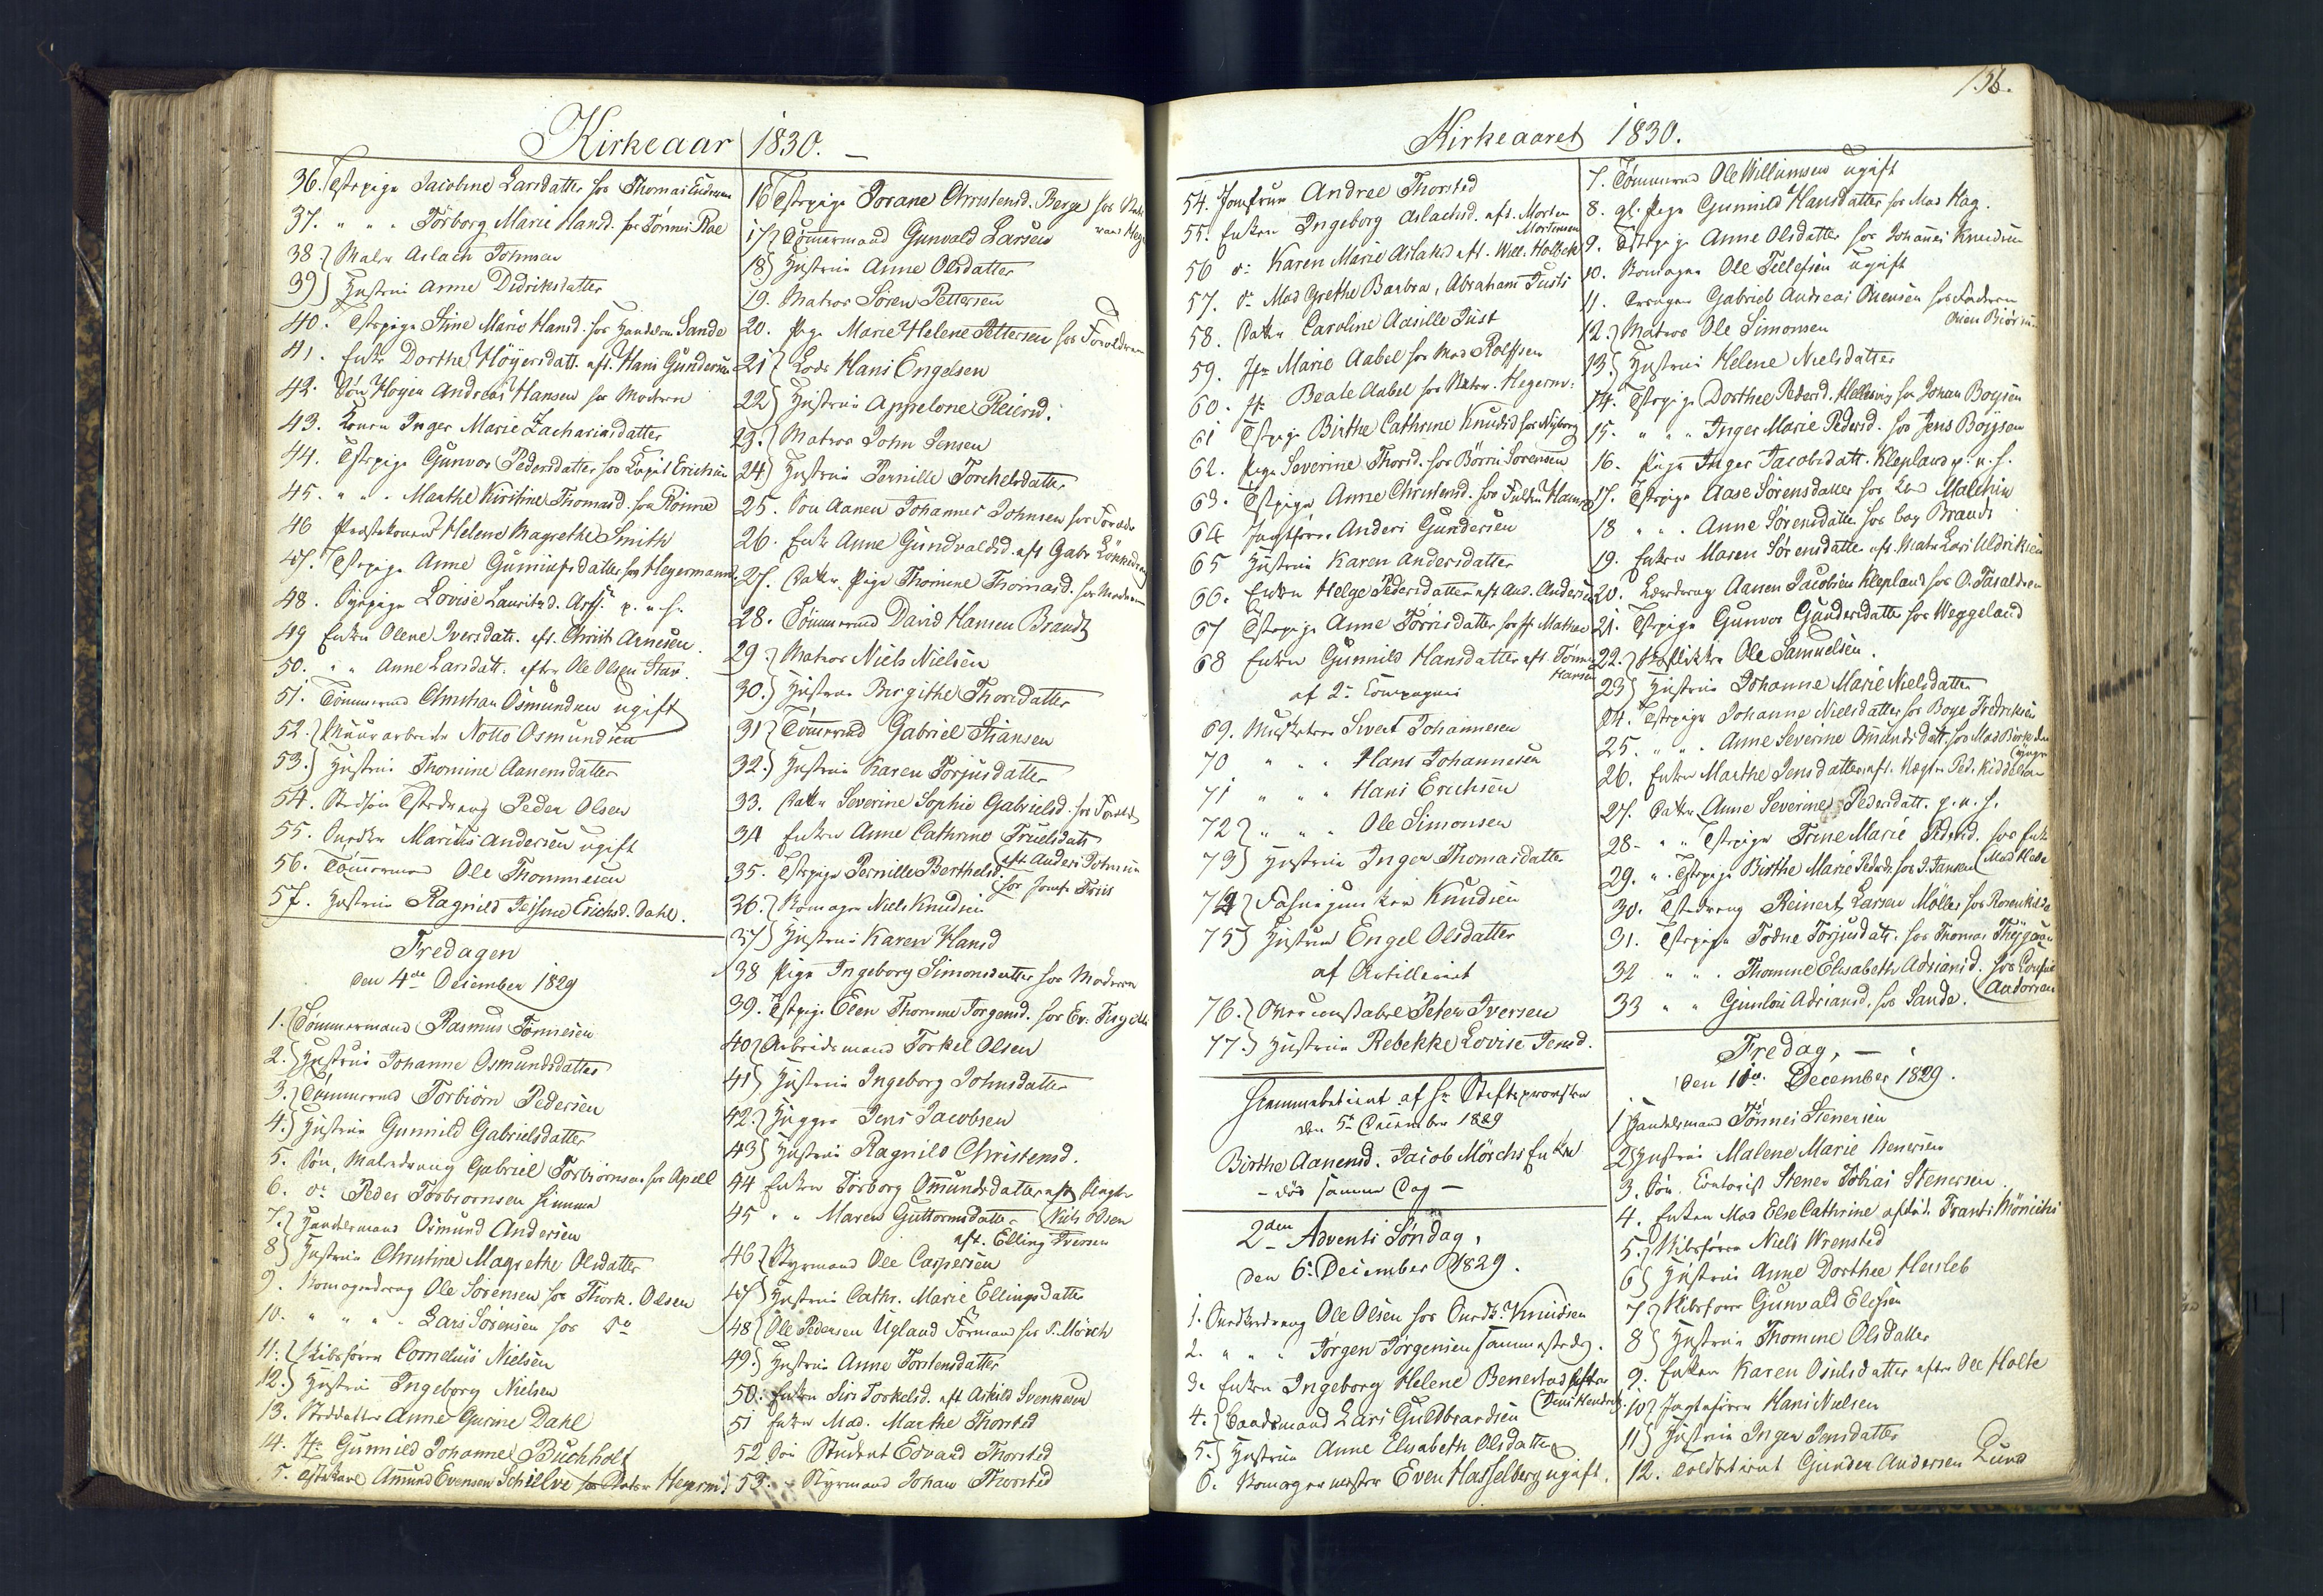 Kirkeaar 1830.
36. Tstpige Jacobine Larsdatter hos Thomas
37. " " " Torborg Marie Hansd. hos Tønnes Rae
38 Maler Aslach Johnsen
39 Hustrue Anne Didriksdatter
40. Tstpige Stine Marie Hansd. hos Handelsm Sande
41. Enke Dorthe Höyersdatt. eft. Hans Gundersen
42. Søn Hogen Andreas Hansen hos Modern
43. Konen Inger Marie Zachariasdatter
44. Tstpige Gunvor Pedersdatter hos Erichsen
45. " " " Marthe Kirstine Thomasd. hos Rönne
46 Præstekonen Helene Magrethe Smith
47. Tstpige Anne Gunnufsdatter hos Heyermann
48. Sypige Lovise Lauritzd. p. u. h.
49 Enken Olene Iversdatt. eft. Christ Arnesen.
50. " " Anne Larsdatt. efter Ole Olsen Star.
51. Tömmermd Christian Osmundsen ugift
52. Muurarbeider Notto Osmundsen
53. Hustrue Thomine Aanensdatter
54. Stedsøn Tstdreng Peder Olsen
55. Snedker Marius Andersen ugift
56. Tömmermd Ole Thommesen
57. Hustrue Ragnild Erichsd. Dahl.
Fredagen
den 4de December 1829
1. Tömmermand Rasmus Tönnesen
2. Hustrue Johanne Osmundsdatter
3. Tömmermd Torbiörn Pedersen
4. Hustrue Gunnild Gabrielsdatter
5. Søn, Malerdreng Gabriel Torbiørnsen hos Apell
6. do Peder Torbiornsen hiemme
7. Handelsmand Osmund Andersen
8 Hustrue Christine Magrethe Olsdatter
9. Komagerdreng Ole Sörensen hos Thork. Olsen
10. " " " " Lars Sörensen hos do
11. Skibsfører Cornelius Nielsen
12. Hustrue Ingeborg Nielsen
13. Steddatter Anne Gurine Dahl
14. Jfr Gunnild Johanne Buchholt
15. Tstkarl Amund Evensen Schielve hos Heyerm.
16 Tstpige Jorane Christensd. Berge hos
17 Tömmermand Gunvald Larsen
18 Hustrue Anne Olsdatter
19. Matros Sören Pettersen
20. Pige Marie Helene Pettersen hos Forældrene
21 Lods Hans Engelsen
22 Hustrue Appelone Reiersd.
23. Matros John Jensen
24 Hustrue Pernille Torchelsdatter
25. Søn Aanen Johannes Johnsen hos Foræld
26. Enke Anne Gundvaldsd. eft Gabr
27. Datter, Pige Thomine Thomasd. hos Moderen
28. Tömmermd David Hansen Brandt
29. Matros Niels Nielsen
30. Hustrue Birgithe Thorsdatter
31 Tömmermd Gabriel Stiansen
32. Hustrue Karen Torjusdatter
33. Datter Severine Sophie Gabrielsd. hos Foræld
34 Enken Anne Cathrine Truelsdatt
eft. Anders Johnsen
35. Tstpige Pernille Berthelsd.
hos Jomfr Friis
36. Komager Niels Knudsen
37 Hustrue Karen Hansd
38 Pige Ingeborg Simonsdatter hos Moderen
39. Tstpige Elen Thomine Jorgensd. hos
40 Arbeidsmand Torkel Olsen
41 Hustrue Ingeborg Johnsdatter
42. Hugger Jens Jacobsen
43 Hustrue Ragnild Christensd.
44 Enken Torborg Omundsdatter eft
Niels Olsen
45 " " Maren Guttormsdatter
eft. Elling Iversen
46 Styrmand Ole Caspersen
47 Hustrue Cathr. Marie Ellingsdatter
48 Ole Pedersen Ugland Formand hos P. Mörch
49. Hustrue Anne Torstensdatter
50. Enken Siri Torkelsd. eft Askild Svenksen
51 Enken Mad. Marthe Thorsted
52 Søn Student Edvard Thorsted
53. - Styrmand Johan Thorsted
136.
Kirkeaaret 1830.
54. Jomfrue Andree Thorsted
55. Enken Ingeborg Aslachsd. eft. Morten
Mortensen
56 do Karen Marie Aslaksd eft. Will. Holbek
57. do Mad Grethe Barbra, Abraham Justs
58. Datter Caroline Adsille Just
59. Jfr Marie Aabel hos Mad Rolfsen
60. Jfr Beate Aabel hos Heyerm:
61 Tstpige Birthe Cathrine Knudsd hos Nyborg
62. Pige Severine Thorsd. hos Börre Sorensen
63. Tstpige Anne Christensd. hos
64 Jagtfører Anders Gundersen
65 Hustrue Karen Andersdatter
66. Enken Helge Pedersdatter eft And. Andersen
67 Tstpige Anne Torrisdatter hos Jfr
68 Enken Gunnild Hansdatter eft. Tönnes
Hansen
af 2det Compagnie
69. Musketeer Sivert Johannesen
70 " " " Hans Johannesen
71 " " " Hans Erichsen
72 " " " Ole Simonsen
73 Hustrue Inger Thomasdatter
74 Fahnejunker Knudsen
75 Hustrue Engel Olsdatter
af Artilleriet
76. Overconstabel Peter Iversen
77. Hustrue Rebekke Lovise Jensd.
Hiemmebetient af Hr Stiftsprovsten
den 5te December 1829
Birthe Aanensd. Jacob Mörchs Enke
- död samme Dag -
2den Advents Søndag,
den 6. December 1829.
1. Snedkerdreng Ole Olsen hos Snedk. Knudsen
2. " " " Jörgen Jörgensen sammesteds.
3. Enken Ingeborg Helene Benestad efter
4. Baadsmand Lars Guldbrandsen
5. Hustrue Anne Elisabeth Olsdatter
6. Komagermester Even Hasselberg ugift.
7. Tömmermd Ole Willumsen ugift
8. gl. Pige Gunnild Hansdatter hos Mad Hag.
9. Tstpige Anne Olsdatter hos Johannes Knudsen
10. Komager Ole Tellefsen ugift
11. Gabriel Andreas Oiensen hos Faderen
12. Matros Ole Simonsen
13. Hustrue Helene Nielsdatter
14. Tstpige Dorthee Pedersd. hos Johan Boysen
15. " " " Inger Marie Pedersd. hos Jens Böysen
16. Pige Inger Jacobsdatt. Klepland p. u. h.
17. Tstpige Aase Sörensdatter hos Malthin
18 " " " Anne Sörensdatter hos Brandt
19. Enken Maren Sörensdatter eft. Matr Lars Uldriksen
20. Læredreng Aanen Jacobsen Klepland hos
21. Tstpige Gunvor Gundersdatter hos Weggeland
22. Ole Samuelsen.
23 Hustrue Johanne Marie Nielsdatter
24. Tstpige Johanne Nielsdatter hos Boye Fredriksen
25. " " " Anne Severine Omundsdatt. hos Mad
26. Enken Marthe Jensdatter eft. Ped. Kiddelsen
27. Datter Anne Severine Pedersdatt. p. u. h.
28 - " " Tstpige Trine Marie Pedersd. hos
29. " " Tstpige Birthe Marie Pedersd. hos
30. Tstdreng Reinert Larsen Möller hos Rosenkilde
31. Tstpige Todne Torjusdatt. hos Thomas
32 " " " Thomine Elisabeth Adriansd. hos
33 " " Gunlou Adriansd. hos Sande.
Fredag, -
den 11te December 1829.
1 Handelsmand Tönnes Stenersen
2 Hustrue Malene Marie Stenersen
3. Søn. Contorist Stener Tobias Stenersen.
4. Enken Mad Else Cathrine afdöde Frants Mönichs
5. Skibsfører Niels Wrensted
6 Hustrue Anne Dorthee Hersleb
7 Skibsfører Gunvald Elefsen
8 Hustrue Thomine Olsdatter
9. Enken Karen Osulsdatter efter Ole Holte
10 Jagtsfører Hans Nielsen
11 Hustrue Inger Jensdatter
12. Toldbetient Gunder Andersen Lund